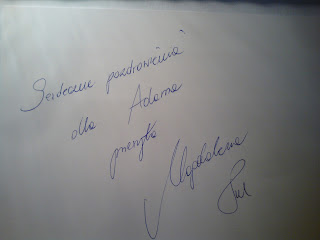 Serdeczne pozdrowienia
dla Adama
przesyła
Magdalena